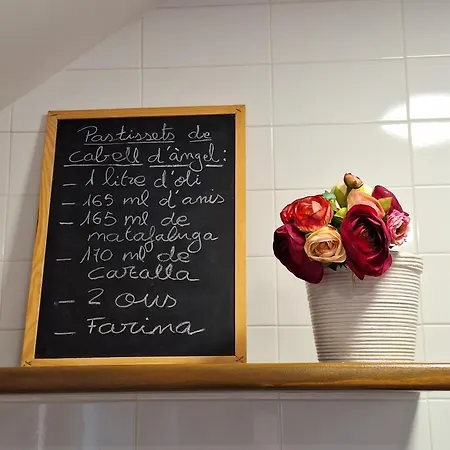 Pastissets de
Cabell d'àngel:
- 1 litre d'oli
- 165 ml d'anis
- 165 ml de
matafaluga
- 170 ml de
cazalla
- 2 ous
- Farina